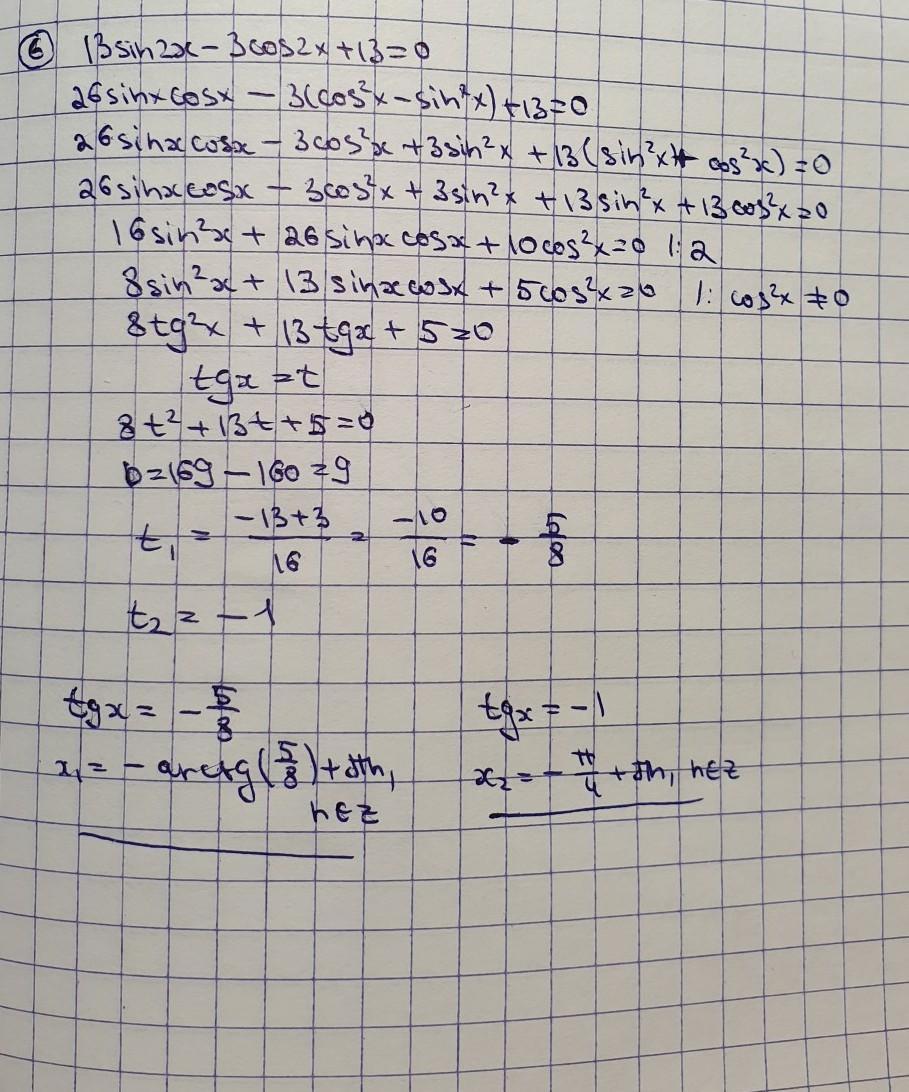 ⑥ 13sin2x - 3cos2x + 13 = 0
26sinxcosx - 3(cos²x - sin²x) + 13 = 0
26sinxcosx - 3cos²x + 3sin²x + 13(sin²x + cos²x) = 0
26sinxcosx - 3cos²x + 3sin²x + 13sin²x + 13cos²x = 0
16sin²x + 26sinxcosx + 10cos²x = 0 |:2
8sin²x + 13sinxcosx + 5cos²x = 0 |: cos²x ≠ 0
8tg²x + 13tgx + 5 = 0
tgx = t
8t² + 13t + 5 = 0
D = 169 - 160 = 9
t₁ = \frac{-13+3}{16} = \frac{-10}{16} = - \frac{5}{8}
t₂ = -1
tgx = - \frac{5}{8} tgx = -1
x₁ = - arctg(\frac{5}{8}) + πn, x₂ = - \frac{π}{4} + πn, n∈z
n∈z